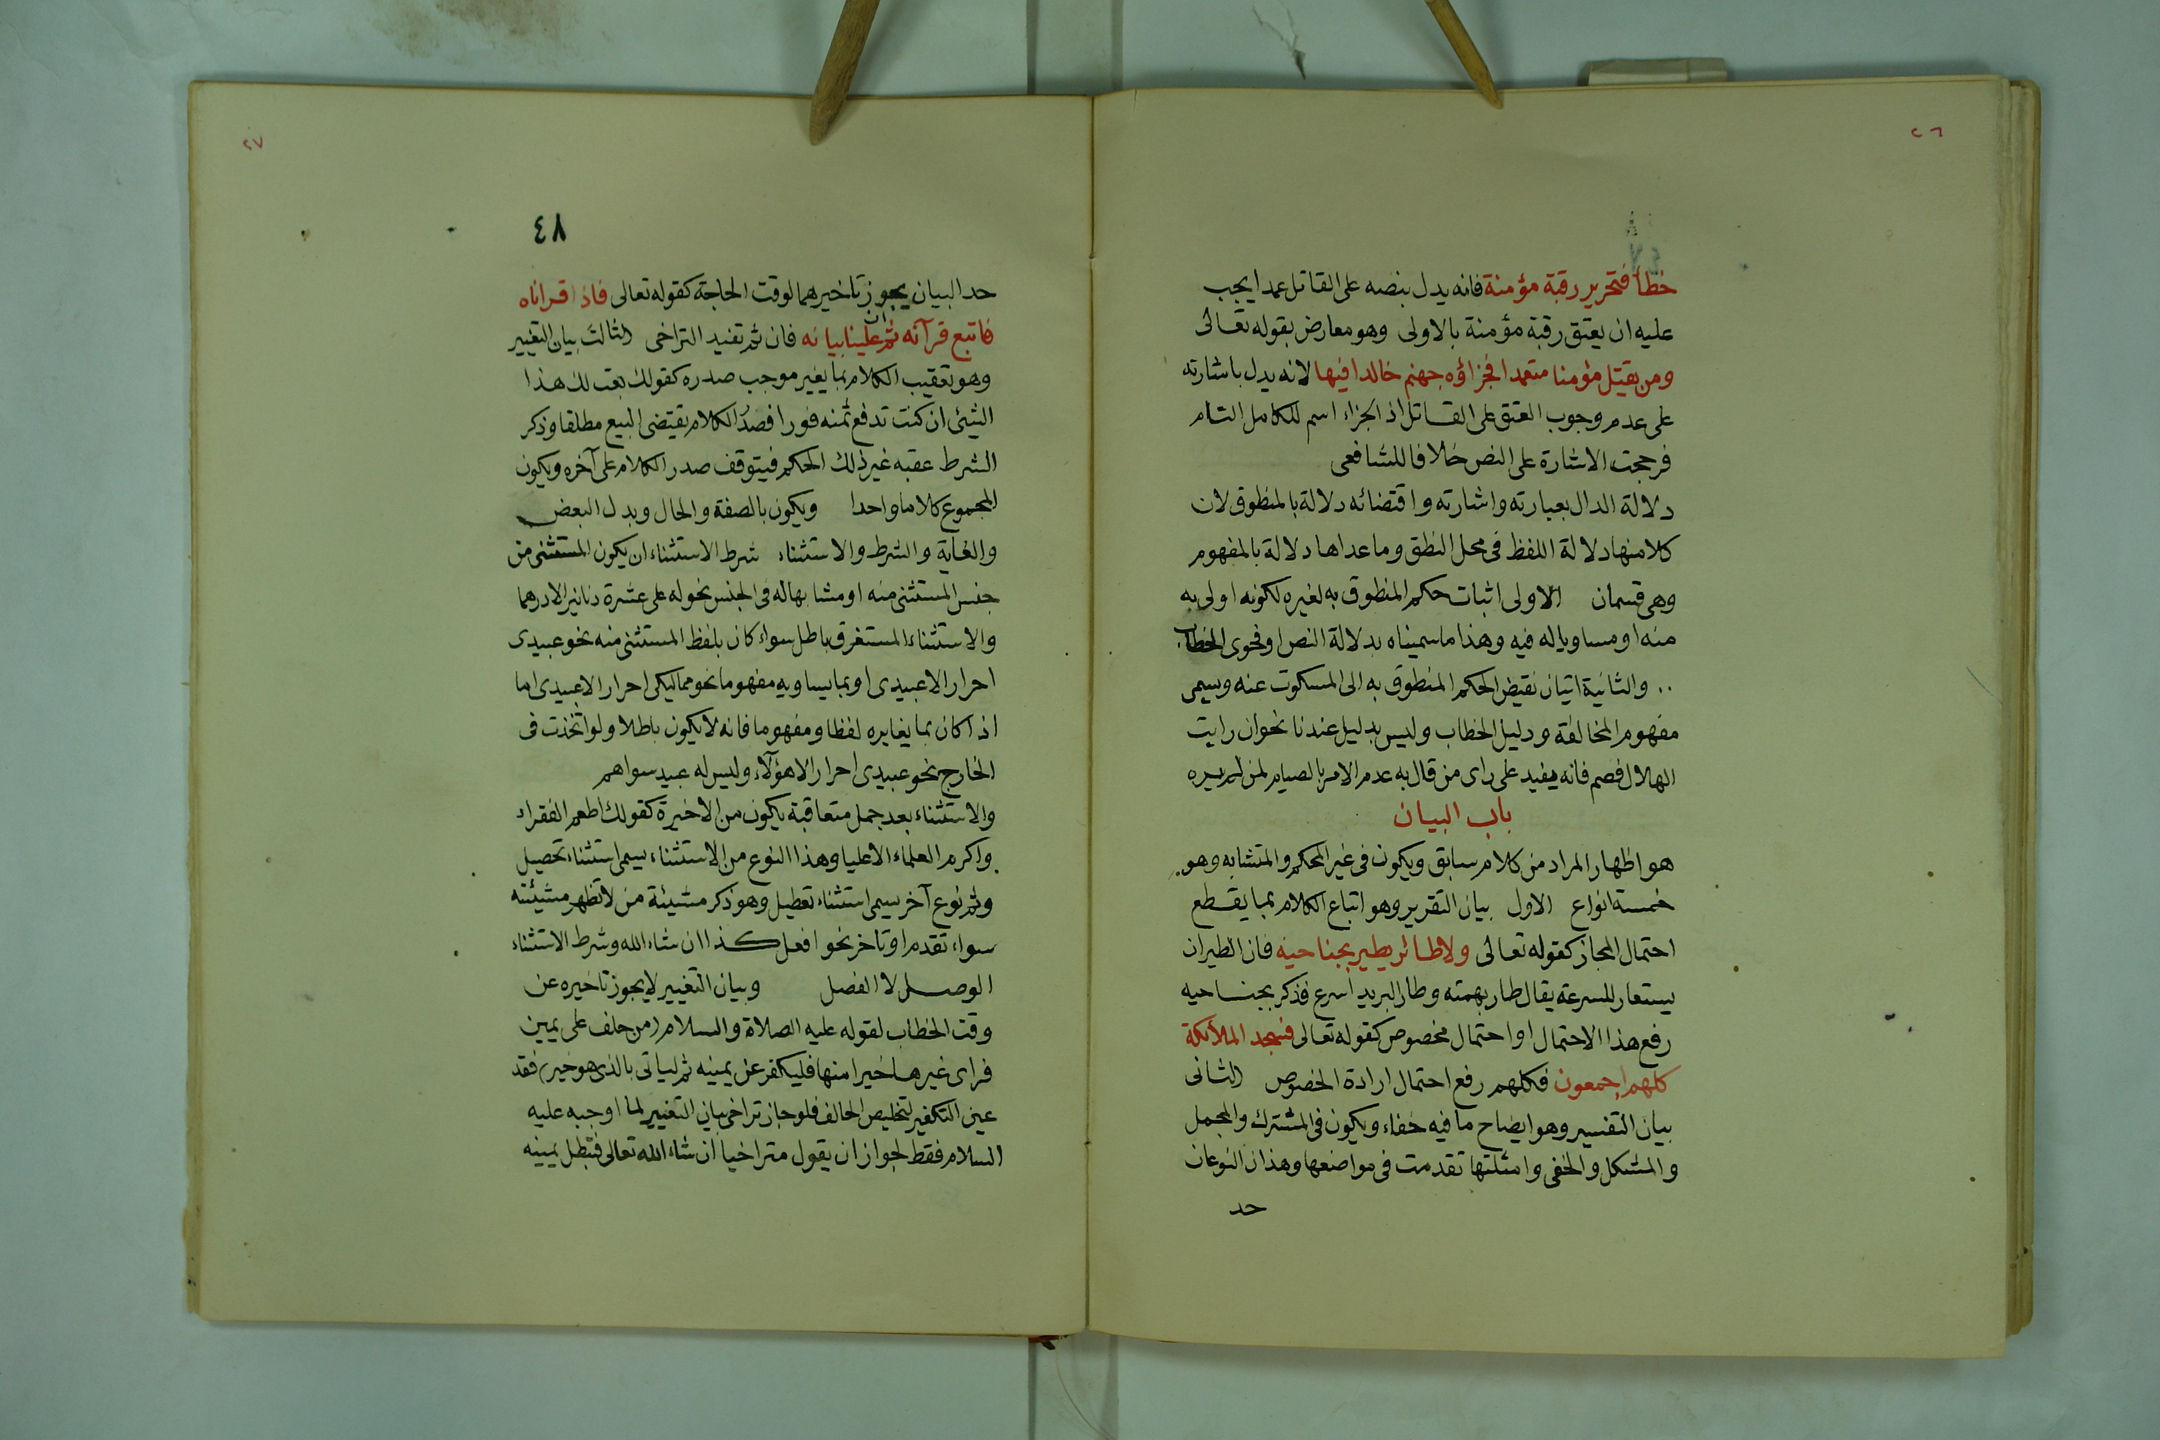 ٢٦
خطأ فتحرير رقبة مؤمنة فانه يدل بنصه على القاتل عمدا يجب
عليه ان يعتق رقبة مؤمنة بالاولى وهو معارض بقوله تعالى
ومن يقتل مؤمنا متعمدا فجزاؤه جهنم خالدا فيها لانه يدل باشارته
على عدم وجوب العتق على القاتل اذ الجزاء اسم للكامل التام
فرجحت الاشارة على النص خلافا للشافعى
دلالة الدال بعبارته واشارته واقتضائه دلالة بالمنظوق لان
كلا منها دلالة اللفظ فى محل النطق وما عداها دلالة بالمفهوم
وهى قسمان الاولى اثبات حكم المنطوق به لغيره لكونه اولى به
منه او مساويا له فيه وهذا ما سميناه بدلالة النص او فحوى الخطاب
.. والثانية اتيان نقيض الحكم المنطوق به الى المسكوت عنه ويسمى
مفهوم المخالفة ودليل الخطاب وليس بدليل عندنا نحو ان رايت
الهلال فصم فانه يفيد على راى من قال به عدم الامر بالصيام لمن لم يره
باب البيان
هو اظهار المراد من كلام سابق ويكون فى غير المحكم والمتشابه وهو
خمسة انواع الاول بيان التقرير وهو اتباع الكلام بما يقطع
احتمال المجاز كقوله تعالى ولا طائر يطير بجناحيه فان الطيران
يستعار للسرعة يقال طار بهمته وطار البريد اسرع فذكر بجناحيه
رفع هذا الاحتمال او احتمال مخصوص كقوله تعالى فسجد الملائكة
كلهم اجمعون فكلهم رفع احتمال ارادة الخصوص الثانى
بيان التفسير وهو ايضاح ما فيه خفاء ويكون فى المشترك والمجمل
والمشكل والخفى وامثلتها تقدمت فى مواضعها وهذان النوعان
حد
٢٧
٤٨
حد البيان يجوز تاخيرهما لوقت الحاجة كقوله تعالى فاذا قراناه
فاتبع قرآنه ثم ان علينا بيانه فان ثم تفيد التراخى الثالث بيان التغيير
وهو تعقيب الكلام بما يغير موجب صدره كقولك بعت لك هذا
الشئ ان كنت تدفع ثمنه فورا فصدر الكلام يقتضى البيع مطلقا وذكر
الشرط عقبه غير ذلك الحكم فيتوقف صدر الكلام على آخره ويكون
المجموع كلاما واحدا ويكون بالصفة والحال وبدل البعض
والغاية والشرط والاستثناء شرط الاستثناء ان يكون المستثنى من
جنس المستثنى منه او مشابها له فى الجنس نحو له على عشرة دنانير الا درهما
والاستثناء المستغرق باطل سواء كان بلفظ المستثنى منه نحو عبيدى
احرار الا عبيدى او بما يساويه مفهوما نحو مماليكى احرار الا عبيدى اما
اذا كان بما يغايره لفظا ومفهوما فانه لا يكون باطلا ولو اتخذت فى
الخارج نحو عبيدى احرار الا هؤلآء وليس له عبيد سواهم
والاستثناء بعد جمل متعاقبة يكون من الاخيرة كقولك اطعم الفقراء
واكرم العلماء الا عليا وهذا النوع من الاستثناء يسمى استثناء تحصيل
وثم نوع آخر يسمى استثناء تعطيل وهو ذكر مشيئة من لا تظهر مشيئته
سواء تقدم او تاخر نحو افعل كذا ان شاء الله وشرط الاستثناء
الوصل لا الفصل وبيان التغيير لا يجوز تاخيره عن
وقت الخطاب لقوله عليه الصلاة والسلام (من حلف على يمين
فراى غيرها خيرا منها فليكفر عن يمينه ثم لياتى بالذى هو خير) فقد
عين التكفير لتخليص الحالف فلو جاز تراخى بيان التغيير لما اوجبه عليه
السلام فقط لجواز ان يقول متراخيا ان شاء الله تعالى فتبطل يمينه